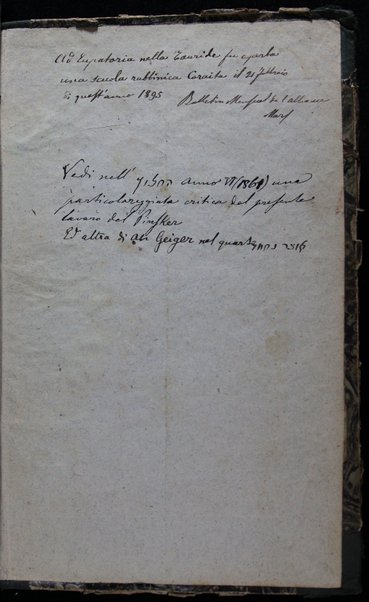 Ad Eupatoria nella Tauride fu aperta
una scuola rabbinica Caraita il 21 febbraio
di quest'anno 1895
Bulletin Mensuel de l'alliance
Mars
Vedi nell' החלוץ anno VI (1861) una
particolareggiata critica del presente
lavoro del Pinsker
Ed altra di Ab Geiger nel quarto אוצר נחמד